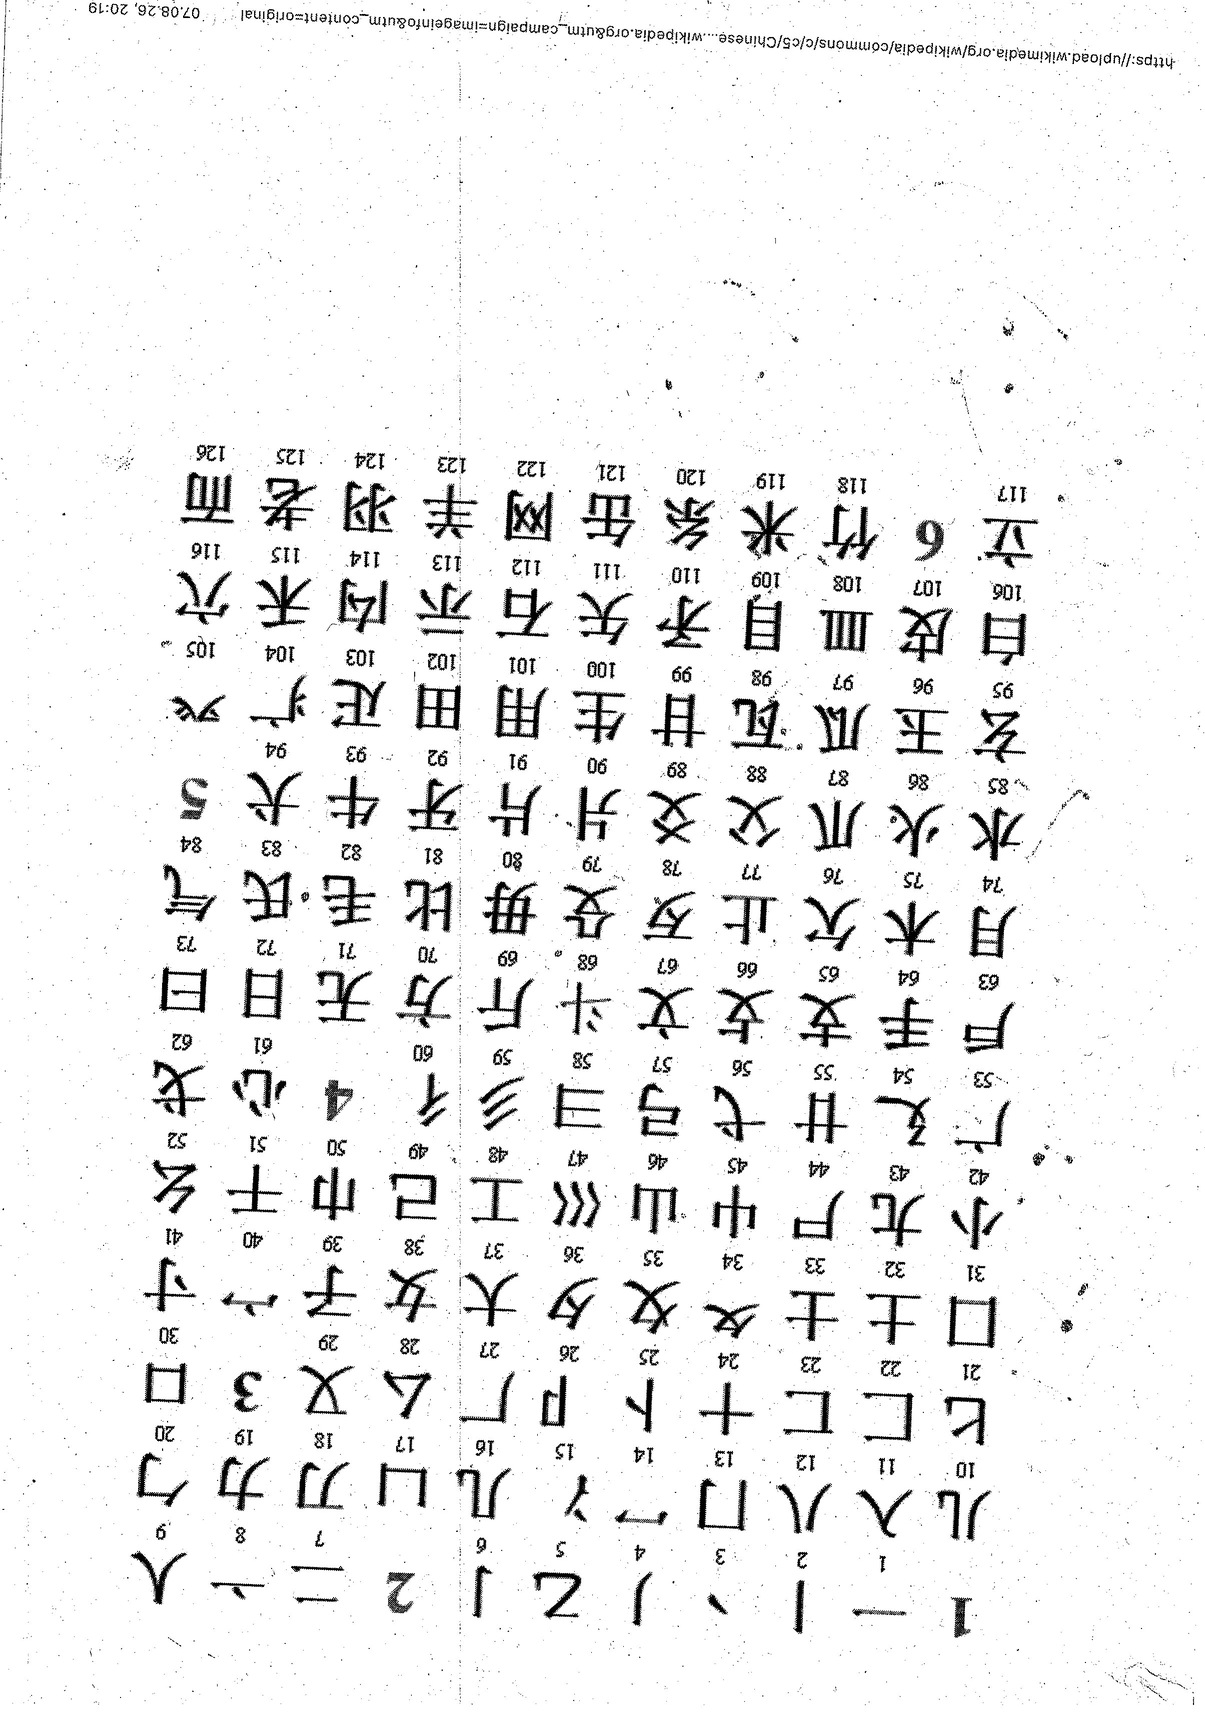 1 一 丨 丶 丿 乙 亅 2 二 亠 人
1 2 3 4 5 6 7 8 9
儿 入 八 冂 冖 冫 几 凵 刀 力 勹
10 11 12 13 14 15 16 17 18 19 20
匕 匚 匸 十 卜 卩 厂 厶 又 3 口
21 22 23 24 25 26 27 28 29 30
囗 土 士 夂 夊 夕 大 女 子 宀 寸
31 32 33 34 35 36 37 38 39 40 41
小 尢 尸 屮 山 巛 工 己 巾 干 幺
42 43 44 45 46 47 48 49 50 51 52
广 廴 廾 弋 弓 彐 彡 彳 4 心 戈
53 54 55 56 57 58 59 60 61 62
戶 手 支 攴 文 斗 斤 方 无 日 曰
63 64 65 66 67 68 69 70 71 72 73
月 木 欠 止 歹 殳 毋 比 毛 氏 气
74 75 76 77 78 79 80 81 82 83 84
水 火 爪 父 爻 爿 片 牙 牛 犬 5
85 86 87 88 89 90 91 92 93 94
玄 玉 瓜 瓦 甘 生 用 田 疋 疒 癶
95 96 97 98 99 100 101 102 103 104 105
白 皮 皿 目 矛 矢 石 示 禸 禾 穴
106 107 108 109 110 111 112 113 114 115 116
立 6 竹 米 糸 缶 网 羊 羽 老 而
117 118 119 120 121 122 123 124 125 126
https://upload.wikimedia.org/wikipedia/commons/c/c5/Chinese....wikipedia.org&utm_campaign=imageinfo&utm_content=original 07.08.26, 20:19